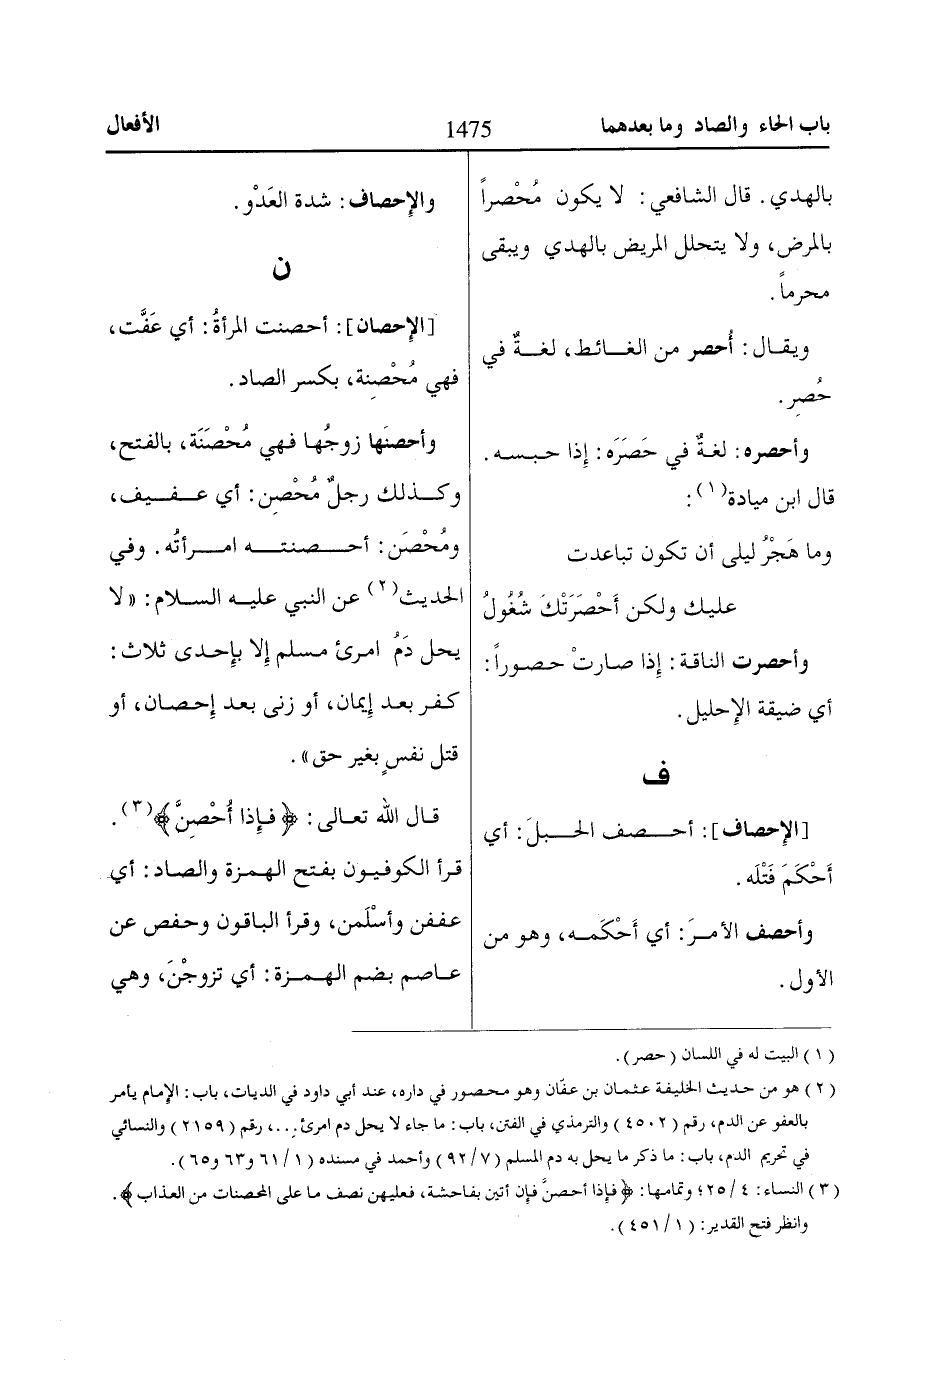 باب الحاء والصاد وما بعدهما
1475
الأفعال
بالهدي. قال الشافعي: لا يكون مُحْصراً
بالمرض، ولا يتحلل المريض بالهدي ويبقى
محرماً.
ويقال: أُحصر من الغائط، لغةٌ في
حُصِر.
وأحصره: لغةٌ في حَصَرَه: إذا حبسه.
قال ابن ميادة(١):
وما هَجْرُ ليلى أن تكون تباعدت
عليك ولكن أَحْصَرَتْكَ شُغُولُ
وأحصرت الناقة: إذا صارتْ حصوراً:
أي ضيقة الإحليل.
ف
[الإحصاف]: أحصف الحبلَ: أي
أَحْكَمَ فَتْلَه.
وأحصف الأمرَ: أي أَحْكمه، وهو من
الأول.
والإحصاف: شدة العَدْو.
ن
[الإحصان]: أحصنت المرأةُ: أي عَفَّت،
فهي مُحْصِنة، بكسر الصاد.
وأحصنَها زوجُها فهي مُحْصَنَة، بالفتح،
وكذلك رجلٌ مُحْصِن: أي عفيف،
ومُحْصَن: أحصنته امرأتُه. وفي
الحديث(٢) عن النبي عليه السلام: «لا
يحل دَمُ امرئ مسلم إلا بإحدى ثلاث:
كفر بعد إيمان، أو زنى بعد إحصان، أو
قتل نفسٍ بغير حق».
قال الله تعالى: ﴿فإذا أُحْصِنَّ﴾(٣).
قرأ الكوفيون بفتح الهمزة والصاد: أي
عففن وأسْلَمن، وقرأ الباقون وحفص عن
عاصم بضم الهمزة: أي تزوجْنَ، وهي
(١) البيت له في اللسان (حصر).
(٢) هو من حديث الخليفة عثمان بن عفّان وهو محصور في داره، عند أبي داود في الديات، باب: الإمام يأمر
بالعفو عن الدم، رقم (٤٥٠٢) والترمذي في الفتن، باب: ما جاء لا يحل دم امرئ...، رقم (٢١٥٩) والنسائي
في تحريم الدم، باب: ما ذكر ما يحل به دم المسلم (٧/٩٢) وأحمد في مسنده (١/٦١ و٦٣ و٦٥).
(٣) النساء: ٤/٢٥؛ وتمامها: ﴿فإذا أحصنَّ فإن أتين بفاحشة، فعليهن نصف ما على المحصنات من العذاب﴾.
وانظر فتح القدير: (١/٤٥١).